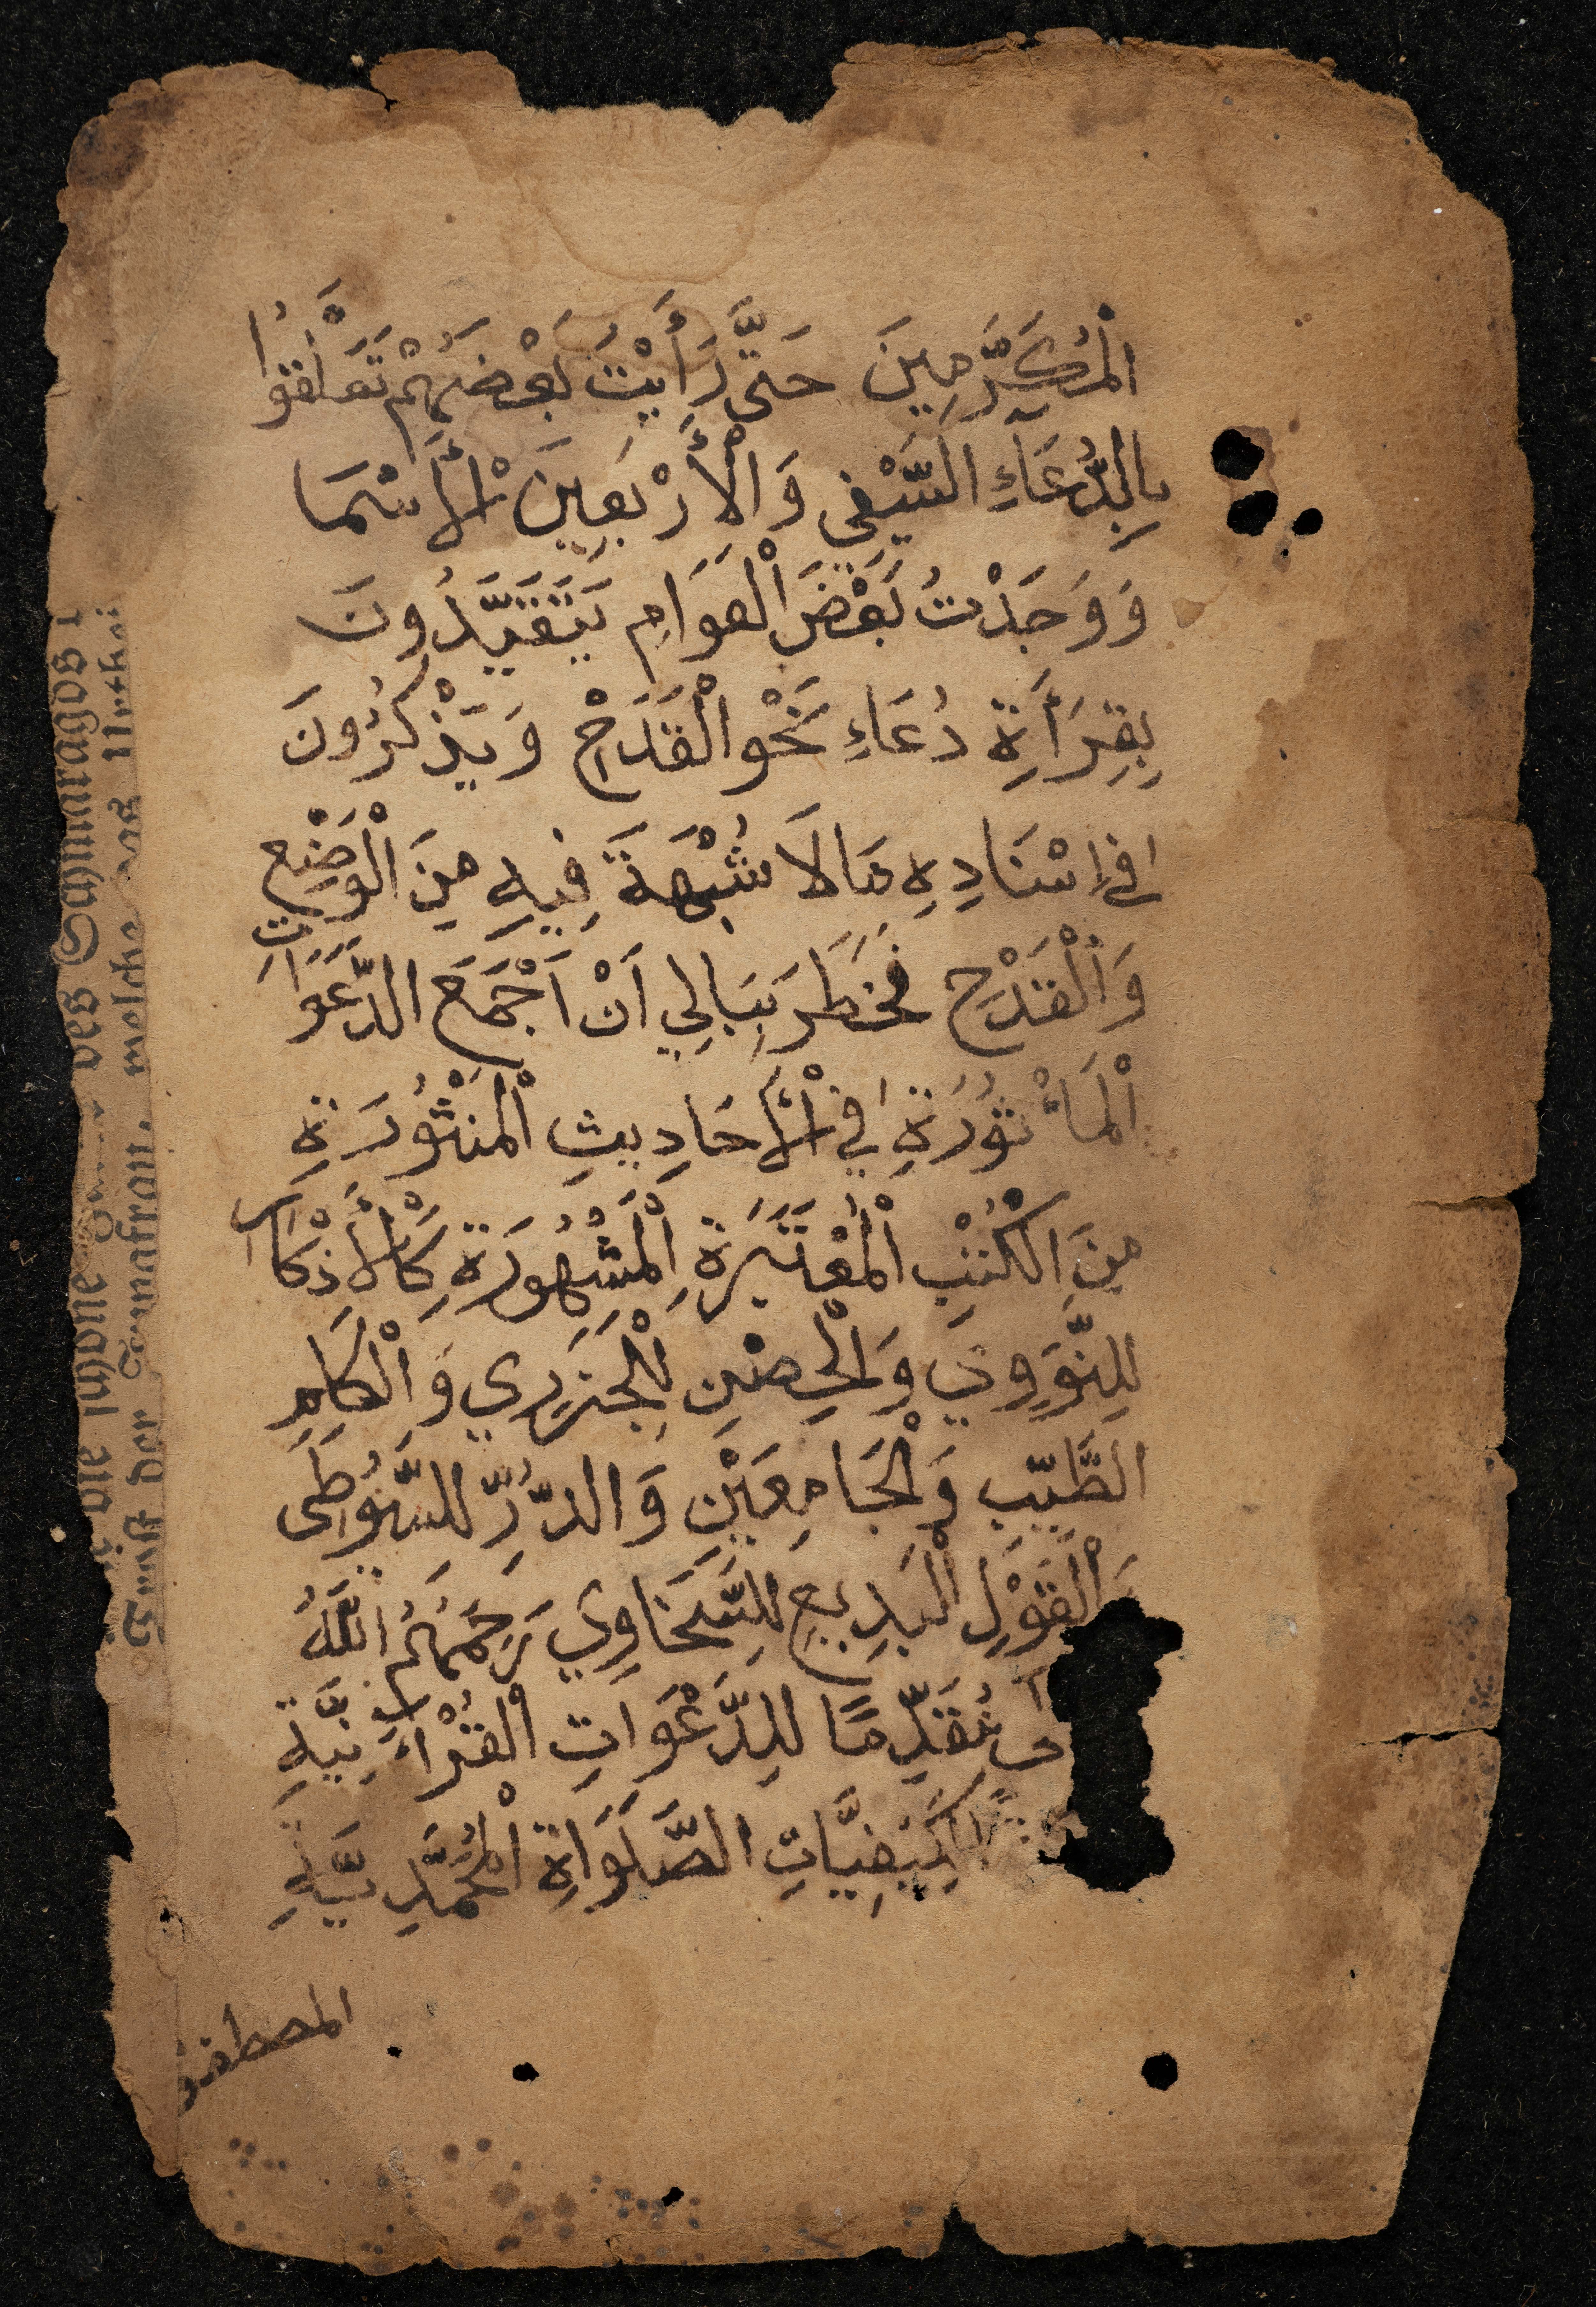 الْمُكَرَّمِينَ حَتَّى رَأَيْتُ بَعْضَهُمْ تَعَلَّقُوا
بِالدُّعَآءِ السَّيْفِي وَالْأَرْبَعِينَ الْأَسْمَا
وَوَجَدْتُ بَعْضَ الْعَوَامِ يَتَقَيَّدُونَ
بِقِرَأَةِ دُعَاءِ نَحْوِ الْقَدَحْ وَيَذْكُرُونَ
فِي إِسْنَادِهِ مَا لَا شُبْهَةَ فِيهِ مِنَ الْوَضْعِ
وَالْقَدْحِ فَخَطَرَ بِبَالِي اَنْ اَجْمَعَ الدَّعَوَاتِ
الْمَأْثُورَةِ فِي الْأَحَادِيثِ الْمَنْثُورَةِ
مِنَ الْكُتُبِ الْمُعْتَبَرَةِ الْمَشْهُورَةِ كَالْأَذْكَارِ
لِلنَّوَوِي وَالْحِصْنِ لِلْجَزَرِي وَالْكَلِمِ
الطَّيِّبِ وَالْجَامِعَيْنِ وَالدُّرِّ لِلسُّيُوطِي
وَالْقَوْلِ الْبَدِيعِ لِلسَّخَاوِي رَحِمَهُمُ اللّٰهُ
مُقَدِّمًا لِلدَّعَوَاتِ الْقُرْآنِيَّةِ
لِكَيْفِيَّاتِ الصَّلَوَاةِ الْمُحَمَّدِيَّةِ
المصطفى
die schöne des Sannaragos
der Sannafran, welche und Urthei